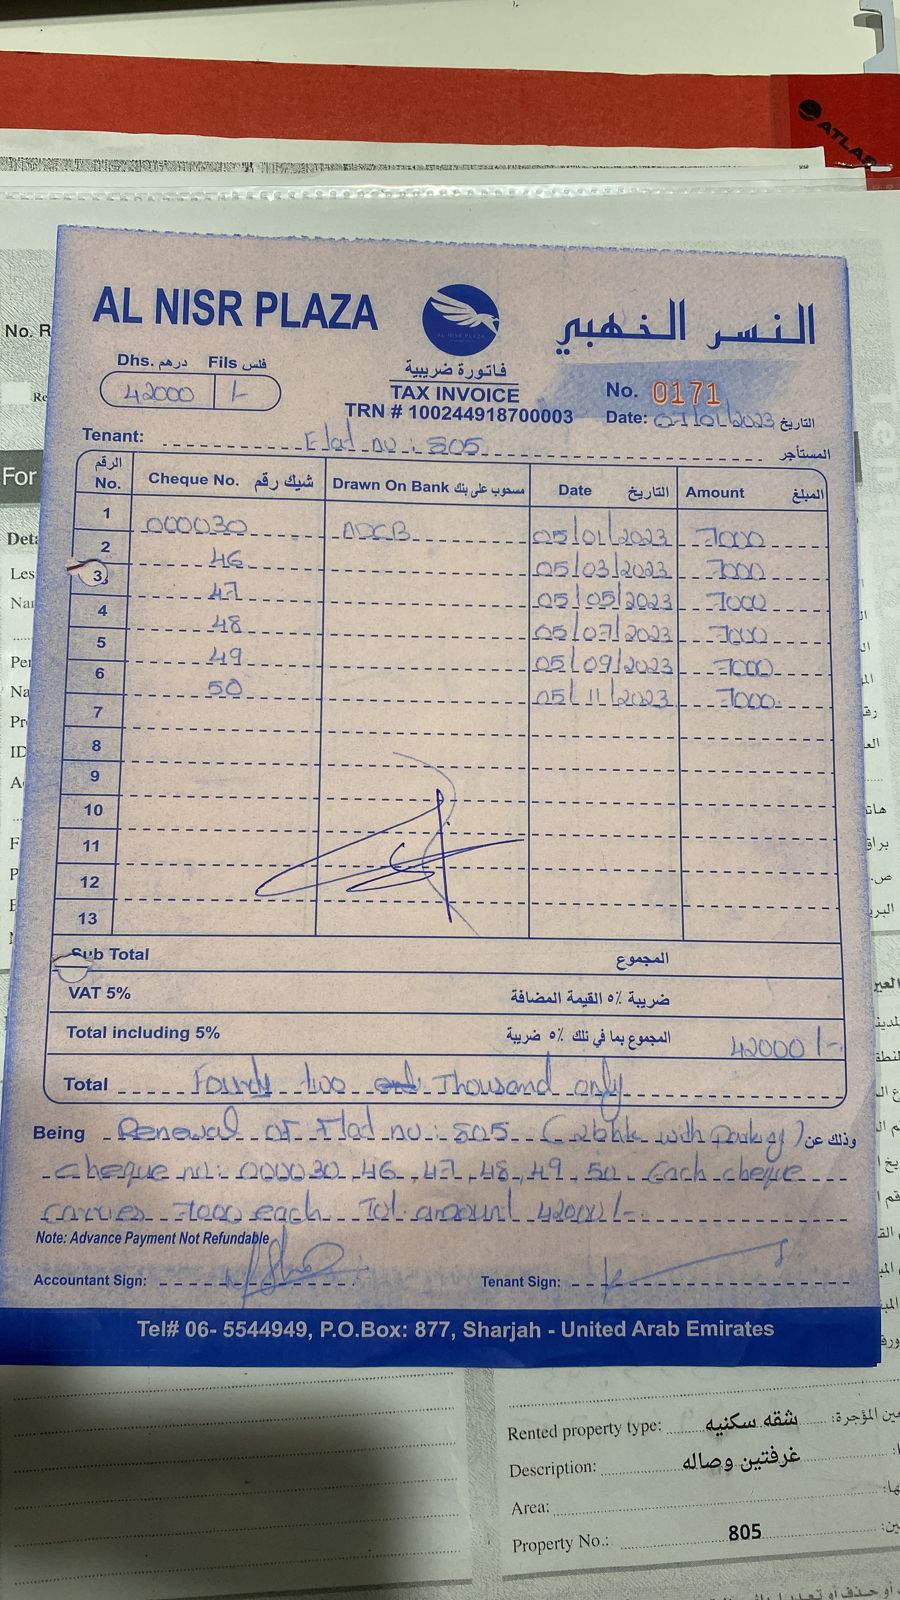 ATLAS
No. R
AL NISR PLAZA
النسر الذهبي
Dhs. درهم Fils فلس
42000 /-
فاتورة ضريبية
TAX INVOICE
TRN # 100244918700003
No. 0171
Date: 07/01/2023 التاريخ
Tenant: Flat no: 805 المستأجر
الرقم No. Cheque No. شيك رقم Drawn On Bank مسحوب على بنك Date التاريخ Amount المبلغ
1 000030 ADCB 05/01/2023 7000
2 46 05/03/2023 7000
3 47 05/05/2023 7000
4 48 05/07/2023 7000
5 49 05/09/2023 7000
6 50 05/11/2023 7000
7
8
9
10
11
12
13
Sub Total المجموع
VAT 5% ضريبة ٥٪ القيمة المضافة
Total including 5% المجموع بما في ذلك ٥٪ ضريبة 42000/-
Total Fourty two Thousand only
Being Renewal of Flat no: 805 (2bhk with Parking) وذلك عن
Cheque no: 000030, 46, 47, 48, 49, 50 Each cheque
carries 7000 each Tot. amount 42000/-
Note: Advance Payment Not Refundable
Accountant Sign: Tenant Sign:
Tel# 06- 5544949, P.O.Box: 877, Sharjah - United Arab Emirates
Rented property type: شقه سكنيه
Description: غرفتين وصاله
Area:
Property No.: 805